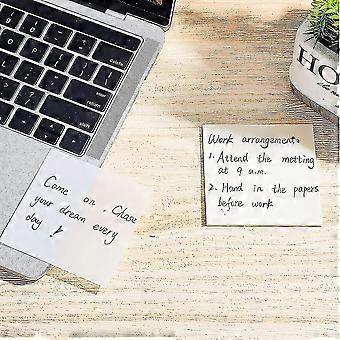 Come on, Chase
your dream every
day !
Work arrangements
1. Attend the metting
at 9 a.m.
2. Hand in the papers
before work
HO
delete
return
shift